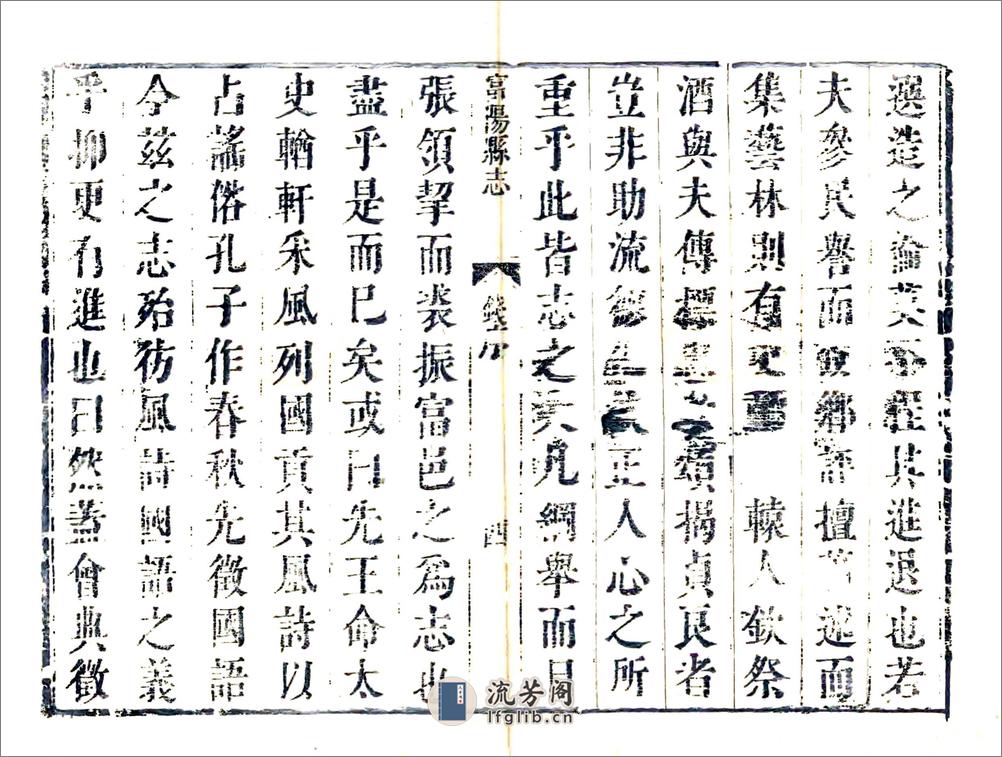 選造之倫英不程其進退也若
夫參民譽而鄉評擅著述而
集藝林別有史轅人欲祭
酒與夫傳標頌揭貞艮者
豈非助流正人心之所
重乎此皆志之大凡綱舉而目
富陽縣志
錢序
四
張領挈而裘振富邑之為志也
盡乎是而巳矣或曰先王命太
史輶軒采風列國貢其風詩以
占謠俗孔子作春秋先徵國語
今茲之志殆彷風詩國語之義
乎抑更有進也曰然蓋會典徵
流芳阁
lfglib.cn